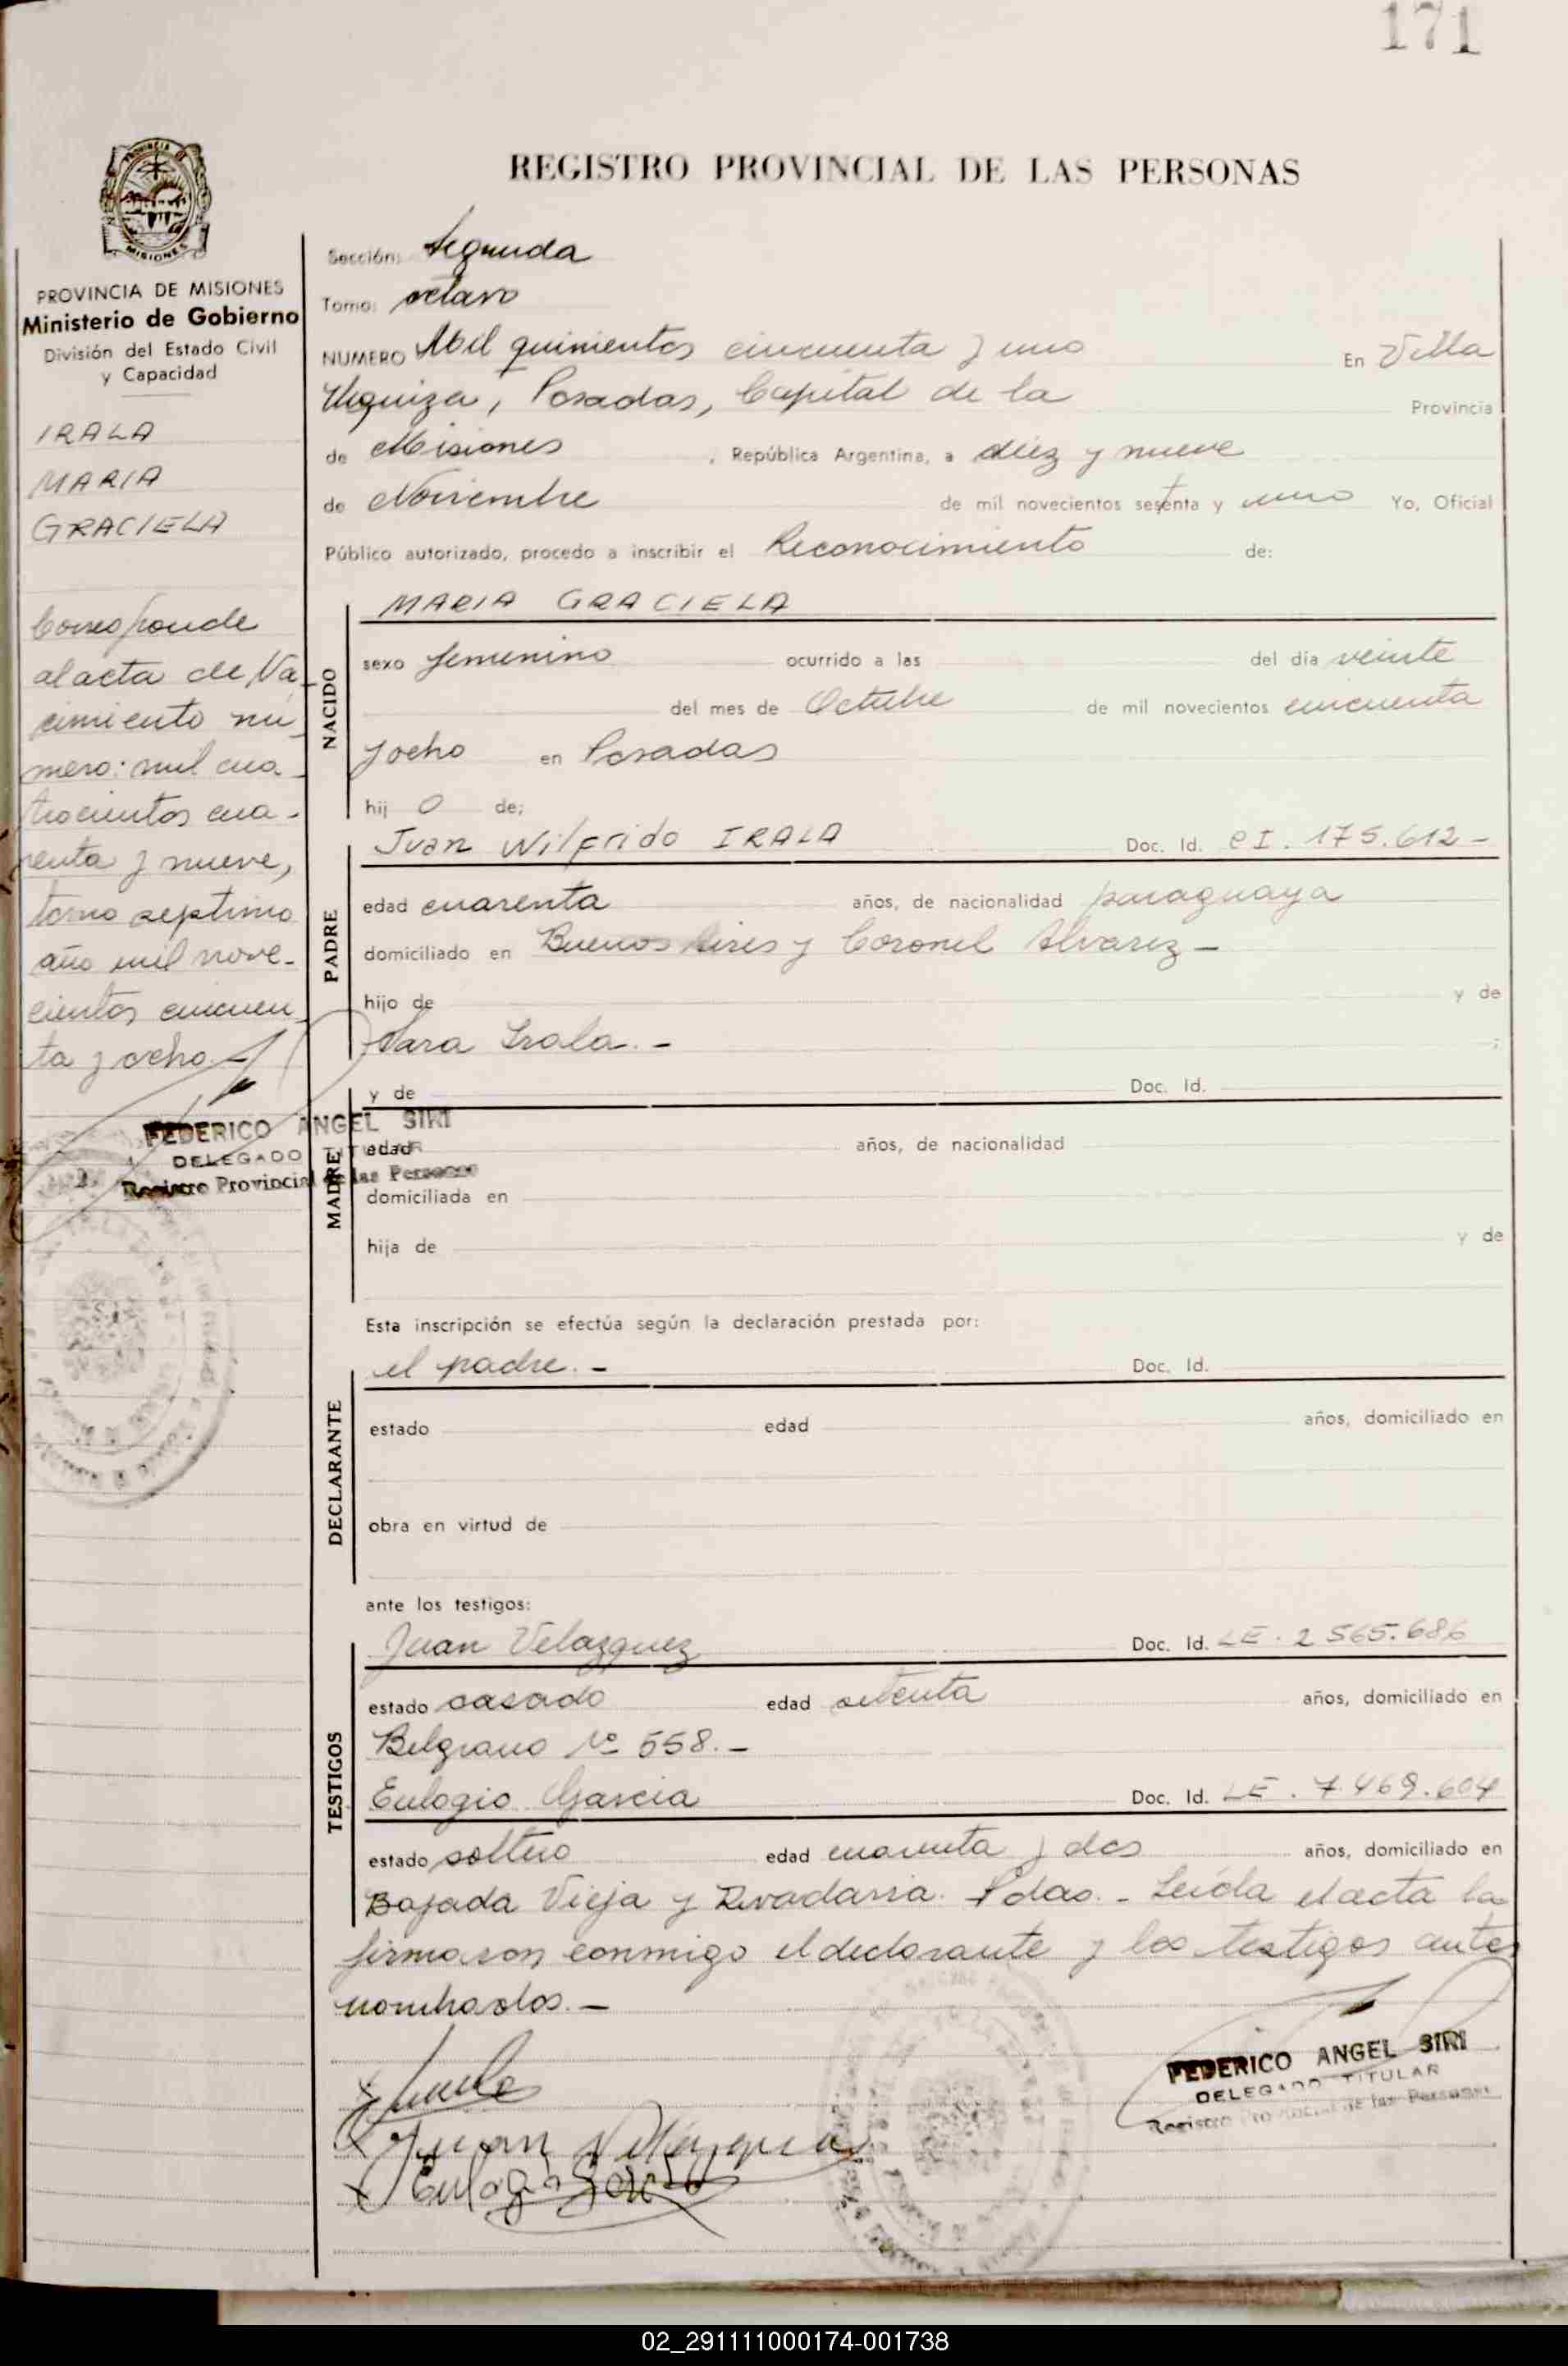 171
PROVINCIA DE MISIONES
Ministerio de Gobierno
División del Estado Civil
y Capacidad
IRALA
MARIA
GRACIELA
Corresponde
al acta de Na
cimiento nú
mero: mil cua
trocientos cua-
renta y nueve,
tomo septimo
año mil nove-
cientos cincuen
ta y ocho.-
FEDERICO ANGEL SIRI
DELEGADO TITULAR
Registro Provincial de las Personas
REGISTRO PROVINCIAL DE LAS PERSONAS
Sección: Segunda
Tomo: octavo
NUMERO Mil quinientos cincuenta y uno En Villa
Urquiza, Posadas, Capital de la Provincia
de Misiones, República Argentina, a diez y nueve
de Noviembre de mil novecientos setenta y uno Yo, Oficial
Público autorizado, procedo a inscribir el Reconocimiento de:
NACIDO
MARIA GRACIELA
sexo femenino ocurrido a las del día veinte
del mes de Octubre de mil novecientos cincuenta
y ocho en Posadas
hij o de;
PADRE
Juan Wilfrido IRALA Doc. Id. CI. 175.612-
edad cuarenta años, de nacionalidad paraguaya
domiciliado en Buenos Aires y Coronel Alvarez-
hijo de y de
Sara Irala.- ;
MADRE
y de Doc. Id.
edad años, de nacionalidad
domiciliada en
hija de y de
Esta inscripción se efectúa según la declaración prestada por:
DECLARANTE
el padre.- Doc. Id.
estado edad años, domiciliado en
obra en virtud de
ante los testigos:
TESTIGOS
Juan Velazquez Doc. Id. LE. 2 565.686
estado casado edad setenta años, domiciliado en
Belgrano Nº 558.-
Eulogio Garcia Doc. Id. LE. 7.469.604
estado soltero edad cuarenta y dos años, domiciliado en
Bajada Vieja y Rivadavia. Pdas.- Leída el acta la
firmaron conmigo el declarante y los testigos antes
nombrados.-
Juan Velazquez
Eulogio Garcia
FEDERICO ANGEL SIRI
DELEGADO TITULAR
Registro Provincial de las Personas
02_291111000174-001738